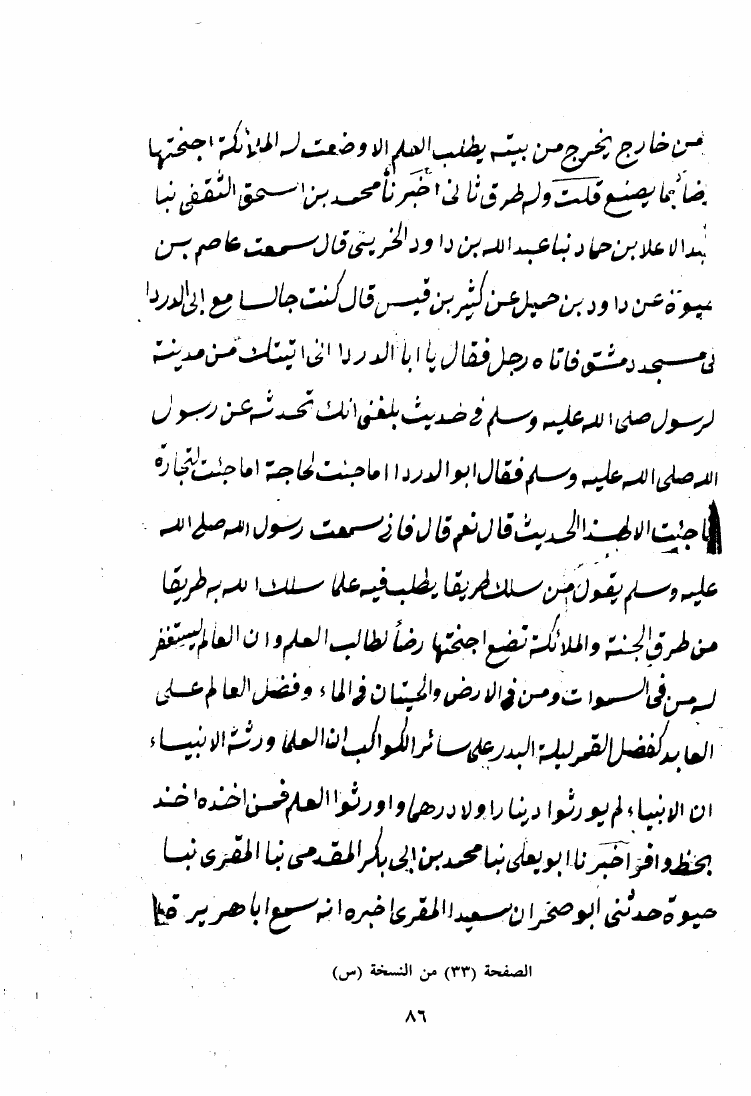 من خارج يخرج من بيته يطلب العلم الا وضعت له الملائكة اجنحتها
رضا بما يصنع قلت وله طرق ثانى اخبرنا محمد بن اسحق الثقفى نبا
عبد الاعلا بن حماد نبا عبد الله بن داود الخريبى قال سمعت عاصم بن
حيوة عن داود بن جميل عن كثير بن قيس قال كنت جالسا مع ابى الدردا
فى مسجد دمشق فاتاه رجل فقال يا ابا الدردا انى اتيتك من مدينة
الرسول صلى الله عليه وسلم فى حديث بلغنى انك تحدثه عن رسول
الله صلى الله عليه وسلم فقال ابو الدردا اما جئت لحاجة اما جئت لتجارة
ما جئت الا لهذا الحديث قال نعم قال فانى سمعت رسول الله صلى الله
عليه وسلم يقول من سلك طريقا يطلب فيه علما سلك الله به طريقا
من طرق الجنة والملائكة تضع اجنحتها رضاً لطالب العلم وان العالم ليستغفر
له من فى السموات ومن فى الارض والحيتان فى الماء وفضل العالم على
العابد كفضل القمر ليلة البدر على سائر الكواكب ان العلما ورثة الانبياء
ان الانبياء لم يورثوا دينارا ولا درهما واورثوا العلم فمن اخذه اخذ
بحظ وافر اخبرنا ابو يعلى نبا محمد بن ابى بكر المقدمى نبا المقرى نبا
حيوة حدثنى ابو صخر ان سعيدا المقبرى اخبره انه سمع ابا هريرة
الصفحة (٣٣) من النسخة (س)
٨٦